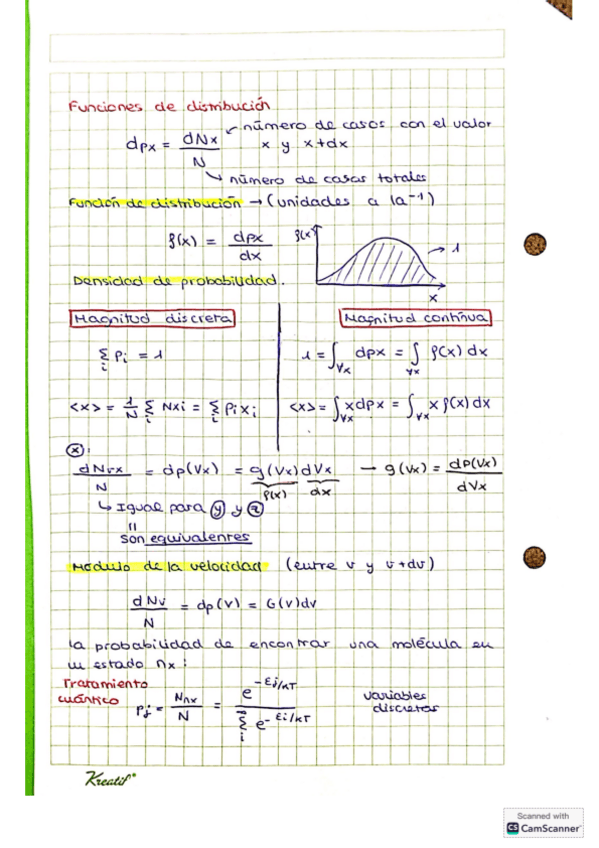 Funciones de distribución
dpx = dNx / N
número de casos con el valor
x y x+dx
número de casos totales
Función de distribución → (unidades a la⁻¹)
ρ(x) = dpx / dx
ρ(x)
→ 1
x
Densidad de probabilidad.
Magnitud discreta
Magnitud contínua
Σi Pi = 1
1 = ∫∀x dpx = ∫∀x ρ(x) dx
<x> = 1/N Σi Nxi = Σi Pi xi
<x> = ∫∀x x dpx = ∫∀x x ρ(x) dx
ⓧ:
dNvx / N = dp(Vx) = g(Vx) dVx → g(Vx) = dP(Vx) / dVx
ρ(x) dx
↳ Igual para ⓨ y ⓩ
"
son equivalentes
Módulo de la velocidad (entre v y v+dv)
dNv / N = dp(v) = G(v)dv
la probabilidad de encontrar una molécula en
un estado nx:
Tratamiento
cuántico
Pj = Nnx / N = e^(-εj/kT) / Σi e^(-εi/kT)
variables
discretas
Kreatif
Scanned with
CS CamScanner